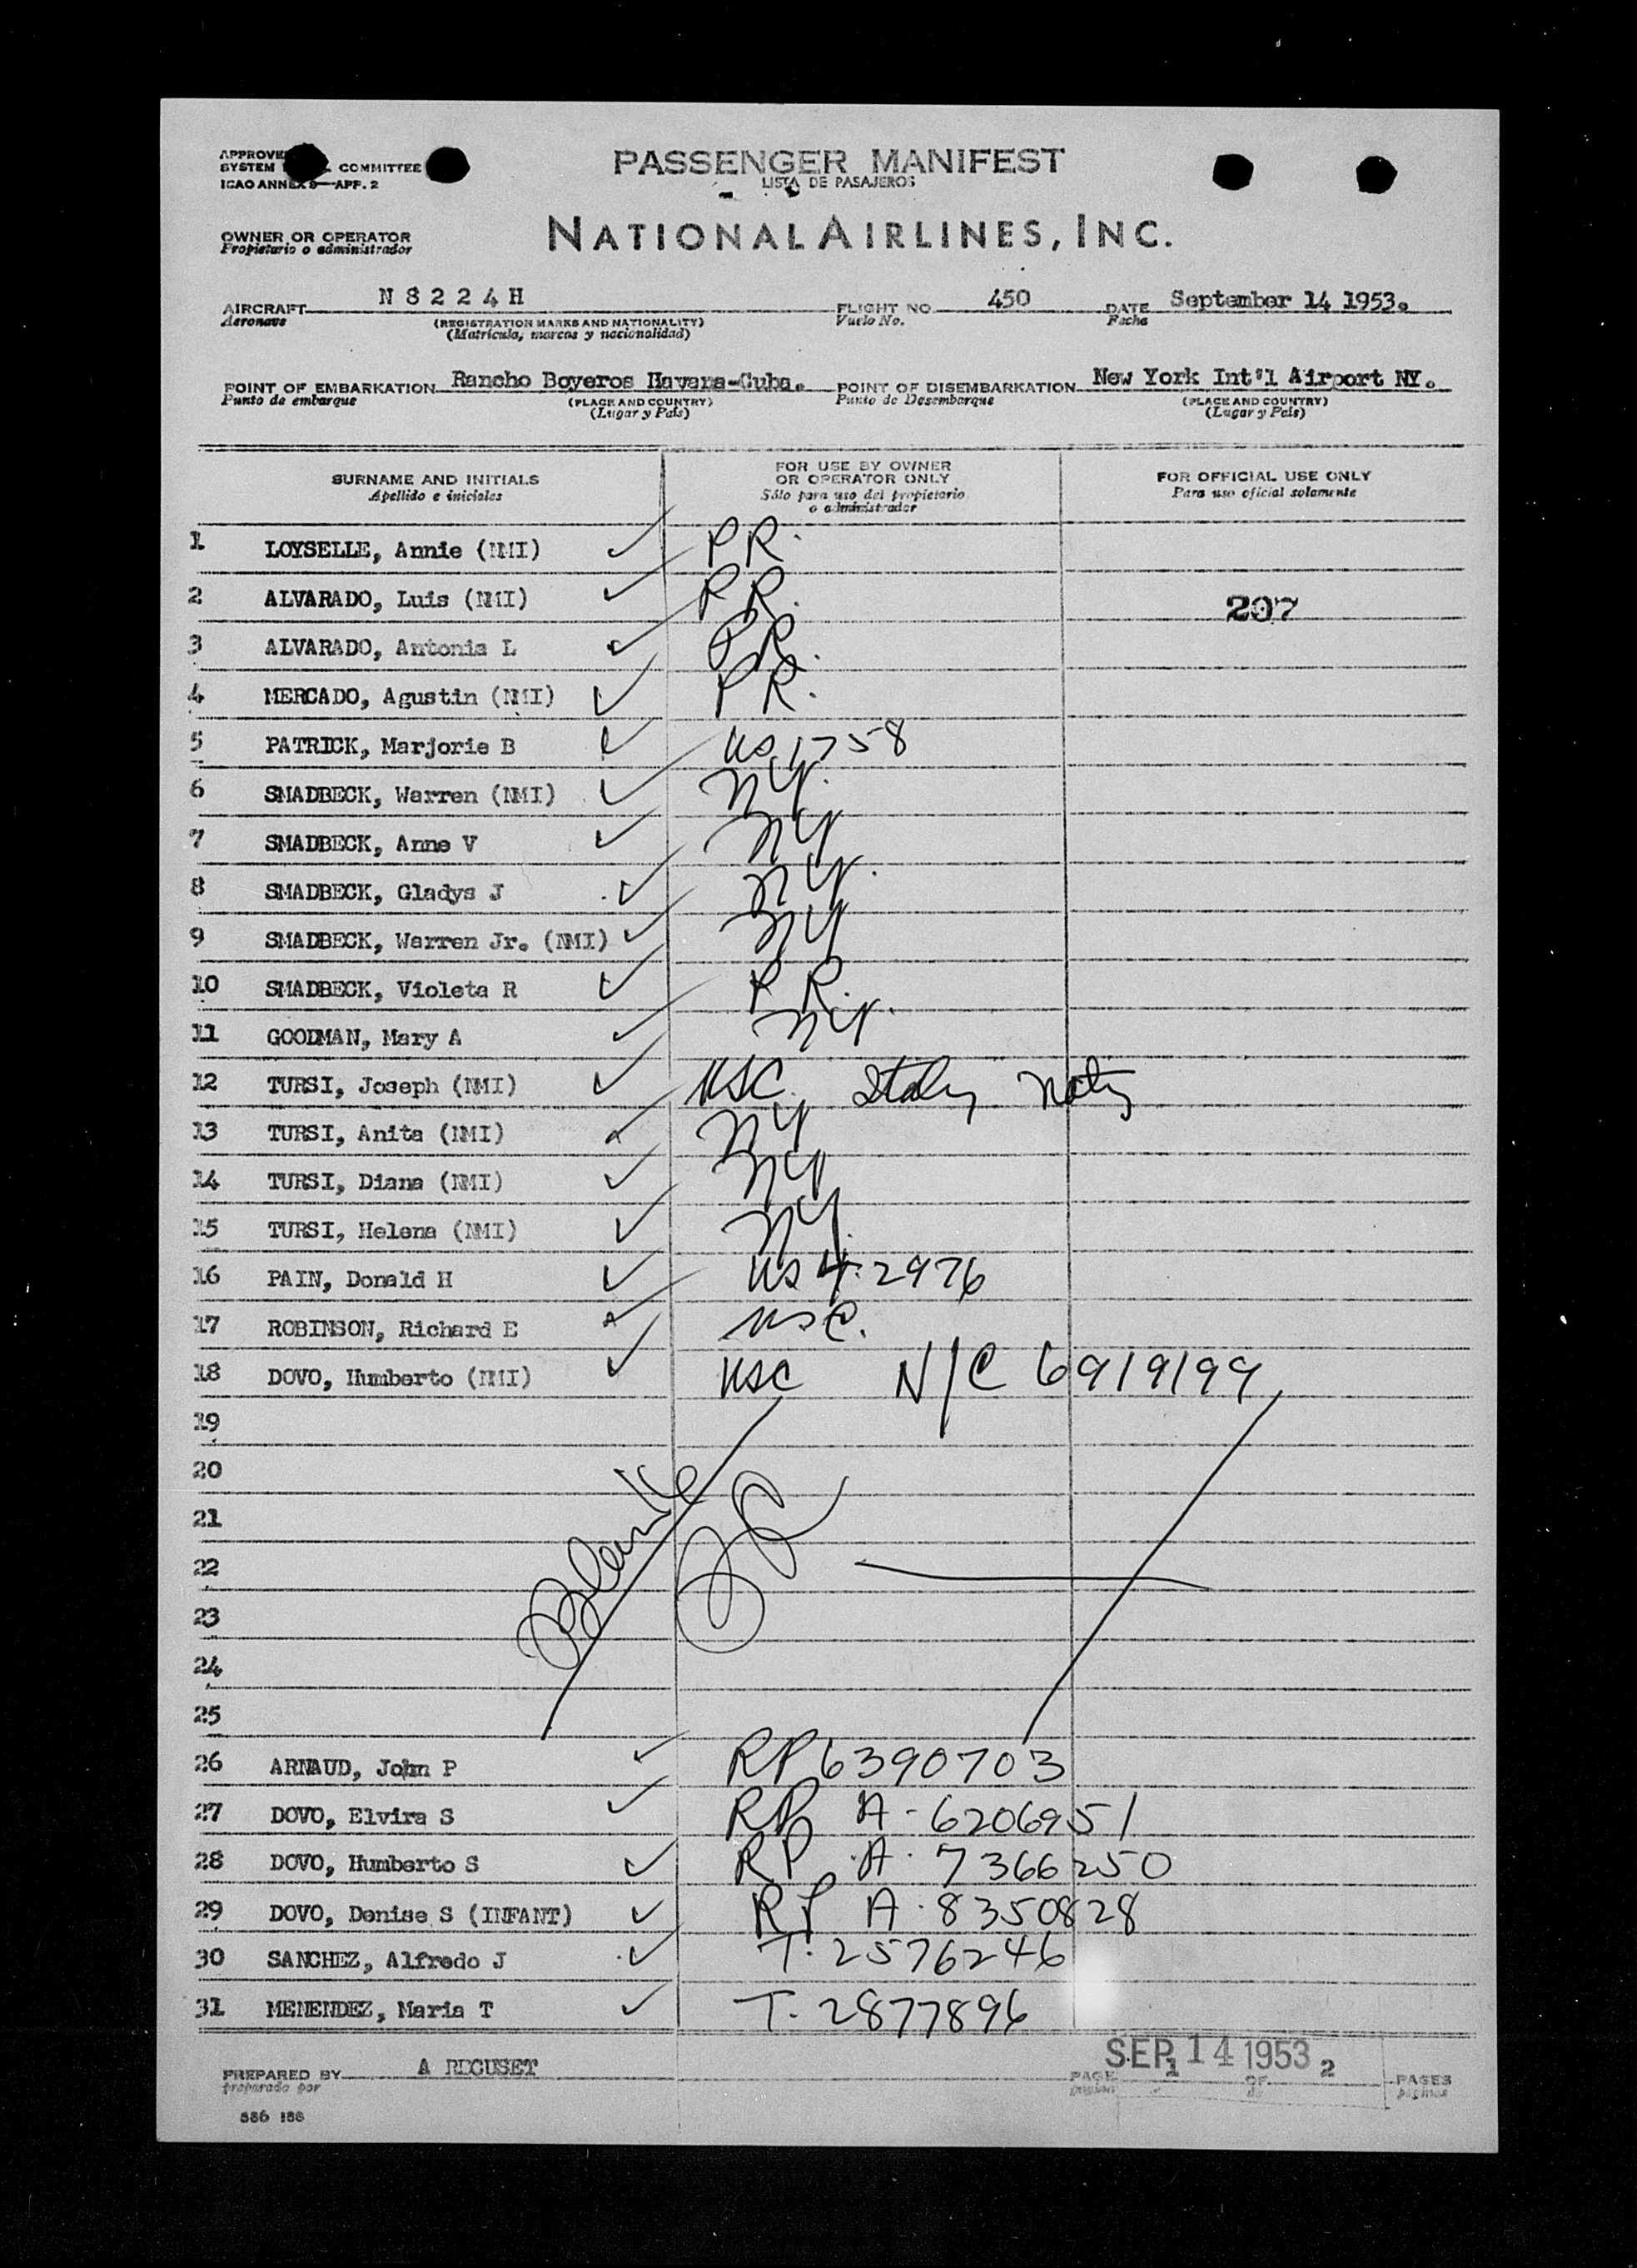 APPROVE
SYSTEM COMMITTEE
ICAO ANNEX 9—APP. 2
PASSENGER MANIFEST
LISTA DE PASAJEROS
NATIONAL AIRLINES, INC.
OWNER OR OPERATOR
Propietario o administrador
AIRCRAFT N 8 2 2 4 H FLIGHT NO 450 DATE September 14 1953.
Aeronave (REGISTRATION MARKS AND NATIONALITY) Vuelo No. Fecha
(Matrícula, marcas y nacionalidad)
POINT OF EMBARKATION Rancho Boyeros Havana-Cuba. POINT OF DISEMBARKATION New York Int'l Airport NY.
Punto de embarque (PLACE AND COUNTRY) Punto de Desembarque (PLACE AND COUNTRY)
(Lugar y País) (Lugar y País)
SURNAME AND INITIALS FOR USE BY OWNER OR OPERATOR ONLY FOR OFFICIAL USE ONLY
Apellido e iniciales Sólo para uso del propietario o administrador Para uso oficial solamente
1 LOYSELLE, Annie (NMI) PR.
2 ALVARADO, Luis (NMI) PR. 207
3 ALVARADO, Antonia L PR.
4 MERCADO, Agustin (NMI) PR.
5 PATRICK, Marjorie B US 1758
6 SMADBECK, Warren (NMI) NY.
7 SMADBECK, Anne V NY
8 SMADBECK, Gladys J NY.
9 SMADBECK, Warren Jr. (NMI) NY
10 SMADBECK, Violeta R PR.
11 GOODMAN, Mary A NY.
12 TURSI, Joseph (NMI) USC. Italy Natz
13 TURSI, Anita (NMI) NY
14 TURSI, Diana (NMI) NY
15 TURSI, Helena (NMI) NY.
16 PAIN, Donald H US 4.2976
17 ROBINSON, Richard E USC.
18 DOVO, Humberto (NMI) USC N/C 6919199
19
20
21
22
23
24
25
Blank
26 ARNAUD, John P RP 6390703
27 DOVO, Elvira S RP A-6206951
28 DOVO, Humberto S RP A. 7366250
29 DOVO, Denise S (INFANT) RP A. 8350828
30 SANCHEZ, Alfredo J T. 2576246
31 MENENDEZ, Maria T T. 2877896
SEP 14 1953
PREPARED BY A RECUSET PAGE 1 OF 2 PAGES
preparado por página de páginas
886 188